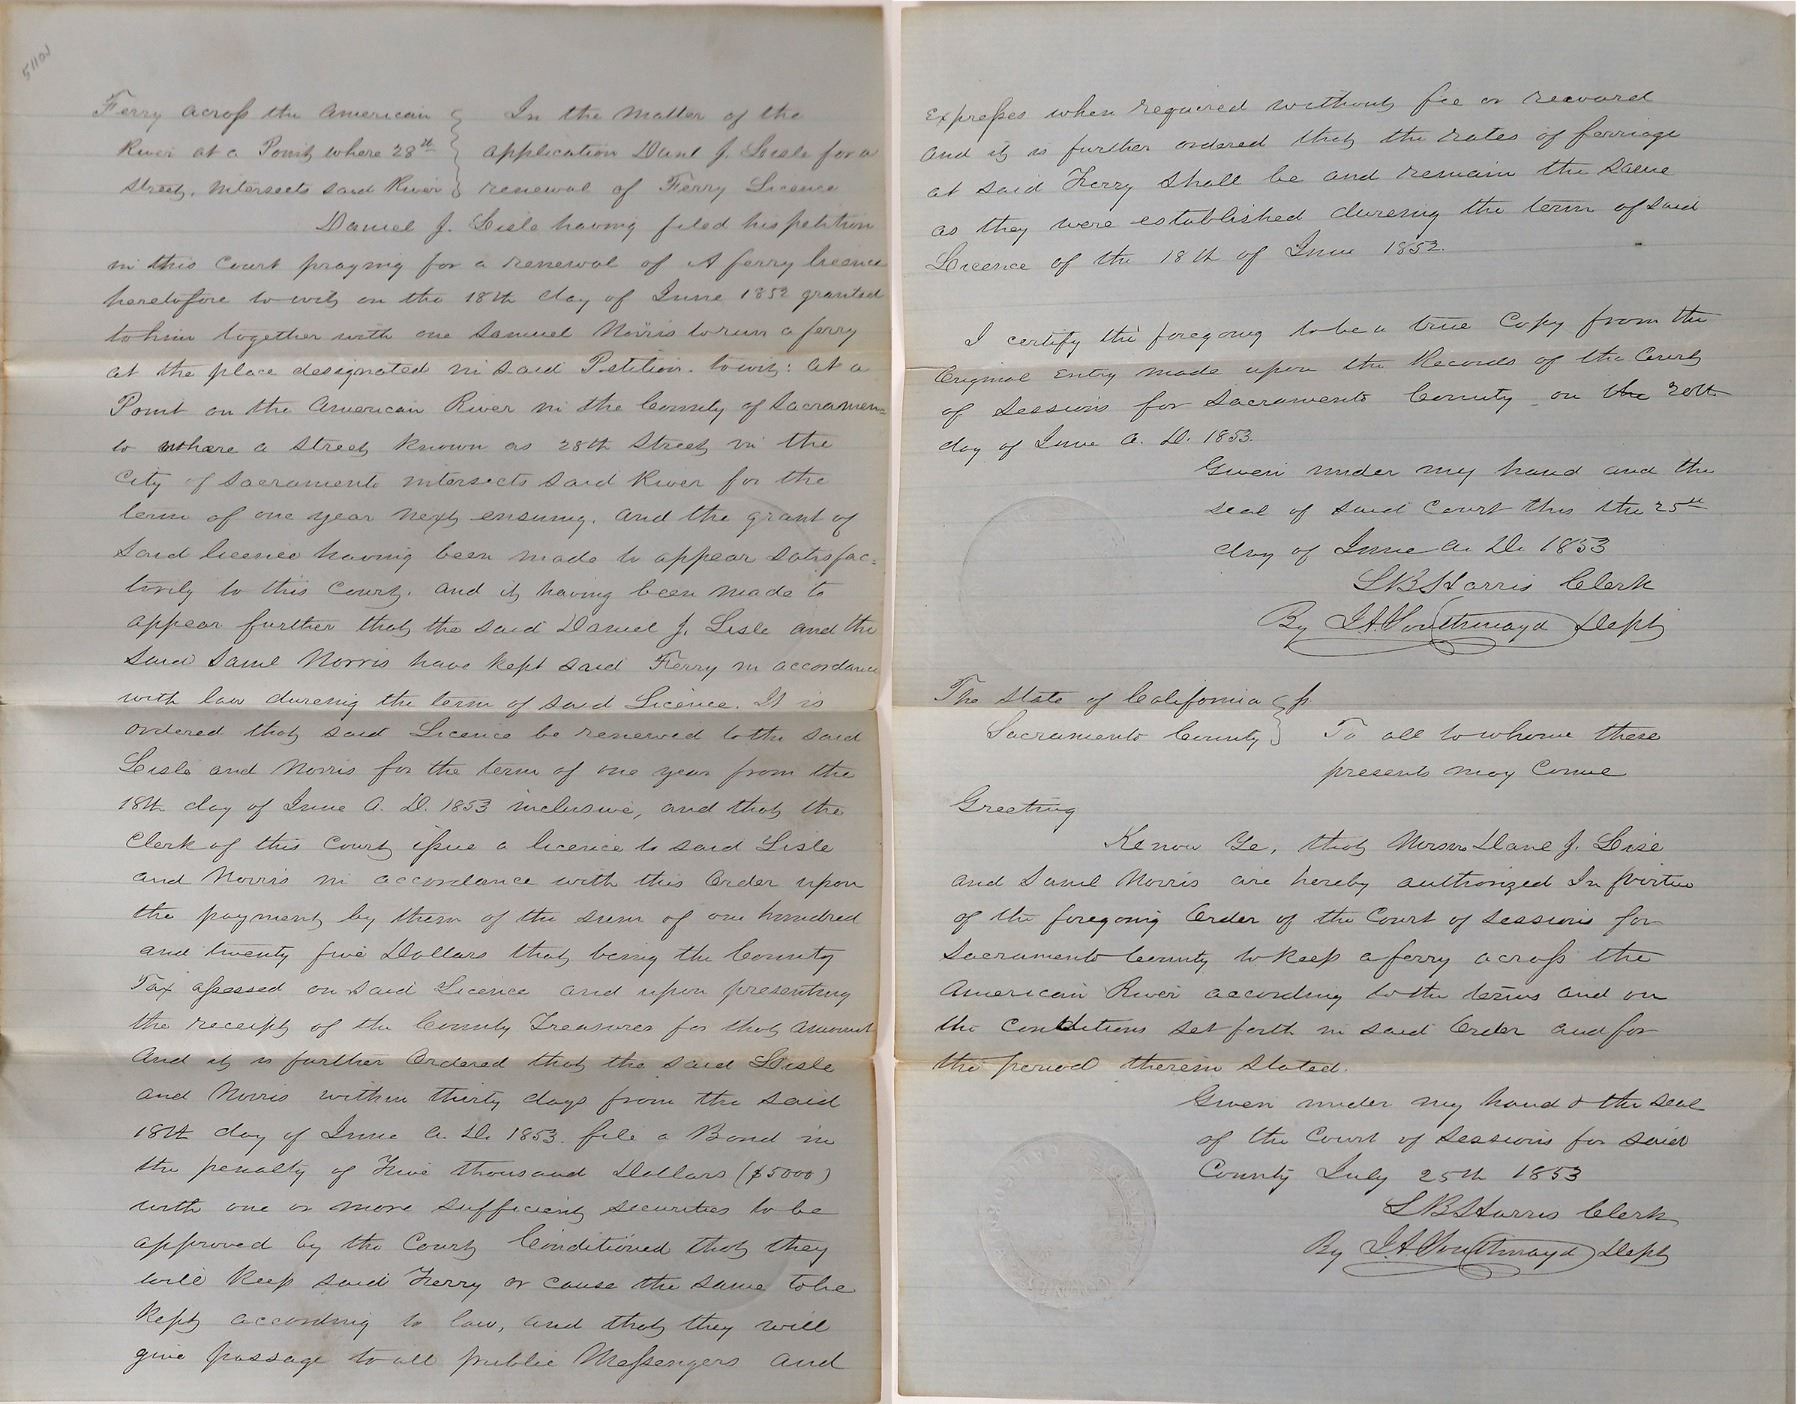 51102
Ferry across the American } In the Matter of the
River at a Point where 28th } application Danl J. Lisle for a
Street, intersects said River } renewal of Ferry Licence
Daniel J. Lisle having filed his petition
in this Court praying for a renewal of A ferry licence
heretofore to wit on the 18th day of June 1852 granted
to him together with one Samuel Norris to run a ferry
at the place designated in said Petition. to wit: at a
Point on the American River in the County of Sacramen=
to where a Street known as 28th Street in the
City of Sacramento intersects said River for the
term of one year next ensuing. and the grant of
said licence having been made to appear satisfac=
torily to this Court. and it having been made to
appear further that the said Daniel J. Lisle and the
said Saml Norris have kept said Ferry in accordance
with law dureing the term of said Licence. It is
ordered that said Licence be renewed to the said
Lisle and Norris for the term of one year from the
18th day of June A. D. 1853 inclusive, and that the
Clerk of this Court issue a licence to said Lisle
and Norris in accordance with this Order upon
the payment by them of the sum of one hundred
and twenty five Dollars that being the County
Tax assessed on said Licence and upon presenting
the receipt of the County Treasurer for that amount
And it is further Ordered that the said Lisle
and Norris within thirty days from the said
18th day of June A. D. 1853. file a Bond in
the penalty of Five thousand Dollars ($5000)
with one or more sufficient securities to be
approved by the Court Conditioned that they
will keep said Ferry or cause the same to be
kept according to law, and that they will
give passage to all public Messengers and
Expresses when required without fee or reward
and it is further ordered that the rates of ferriage
at said Ferry shall be and remain the same
as they were established dureing the term of said
Licence of the 18th of June 1852.
I certify the foregoing to be a true Copy from the
Original Entry made upon the Records of the Court
of Sessions for Sacramento County on the 20th
day of June A. D. 1853.
Given under my hand and the
seal of said Court this the 25th
day of June A. D. 1853
L B Harris Clerk
By J A Southmayd Dept
The State of California } ss
Sacramento County } To all to whome these
presents may Come
Greeting
Know Ye, that Messrs Danl J. Lisle
and Saml Norris are hereby authorized In virtue
of the foregoing Order of the Court of Sessions for
Sacramento County to keep a ferry across the
American River according to the terms and on
the Conditions set forth in said Order and for
the period therein stated.
Given under my hand & the seal
of the Court of Sessions for said
County July 25th 1853
L B Harris Clerk
By J A Southmayd Dept